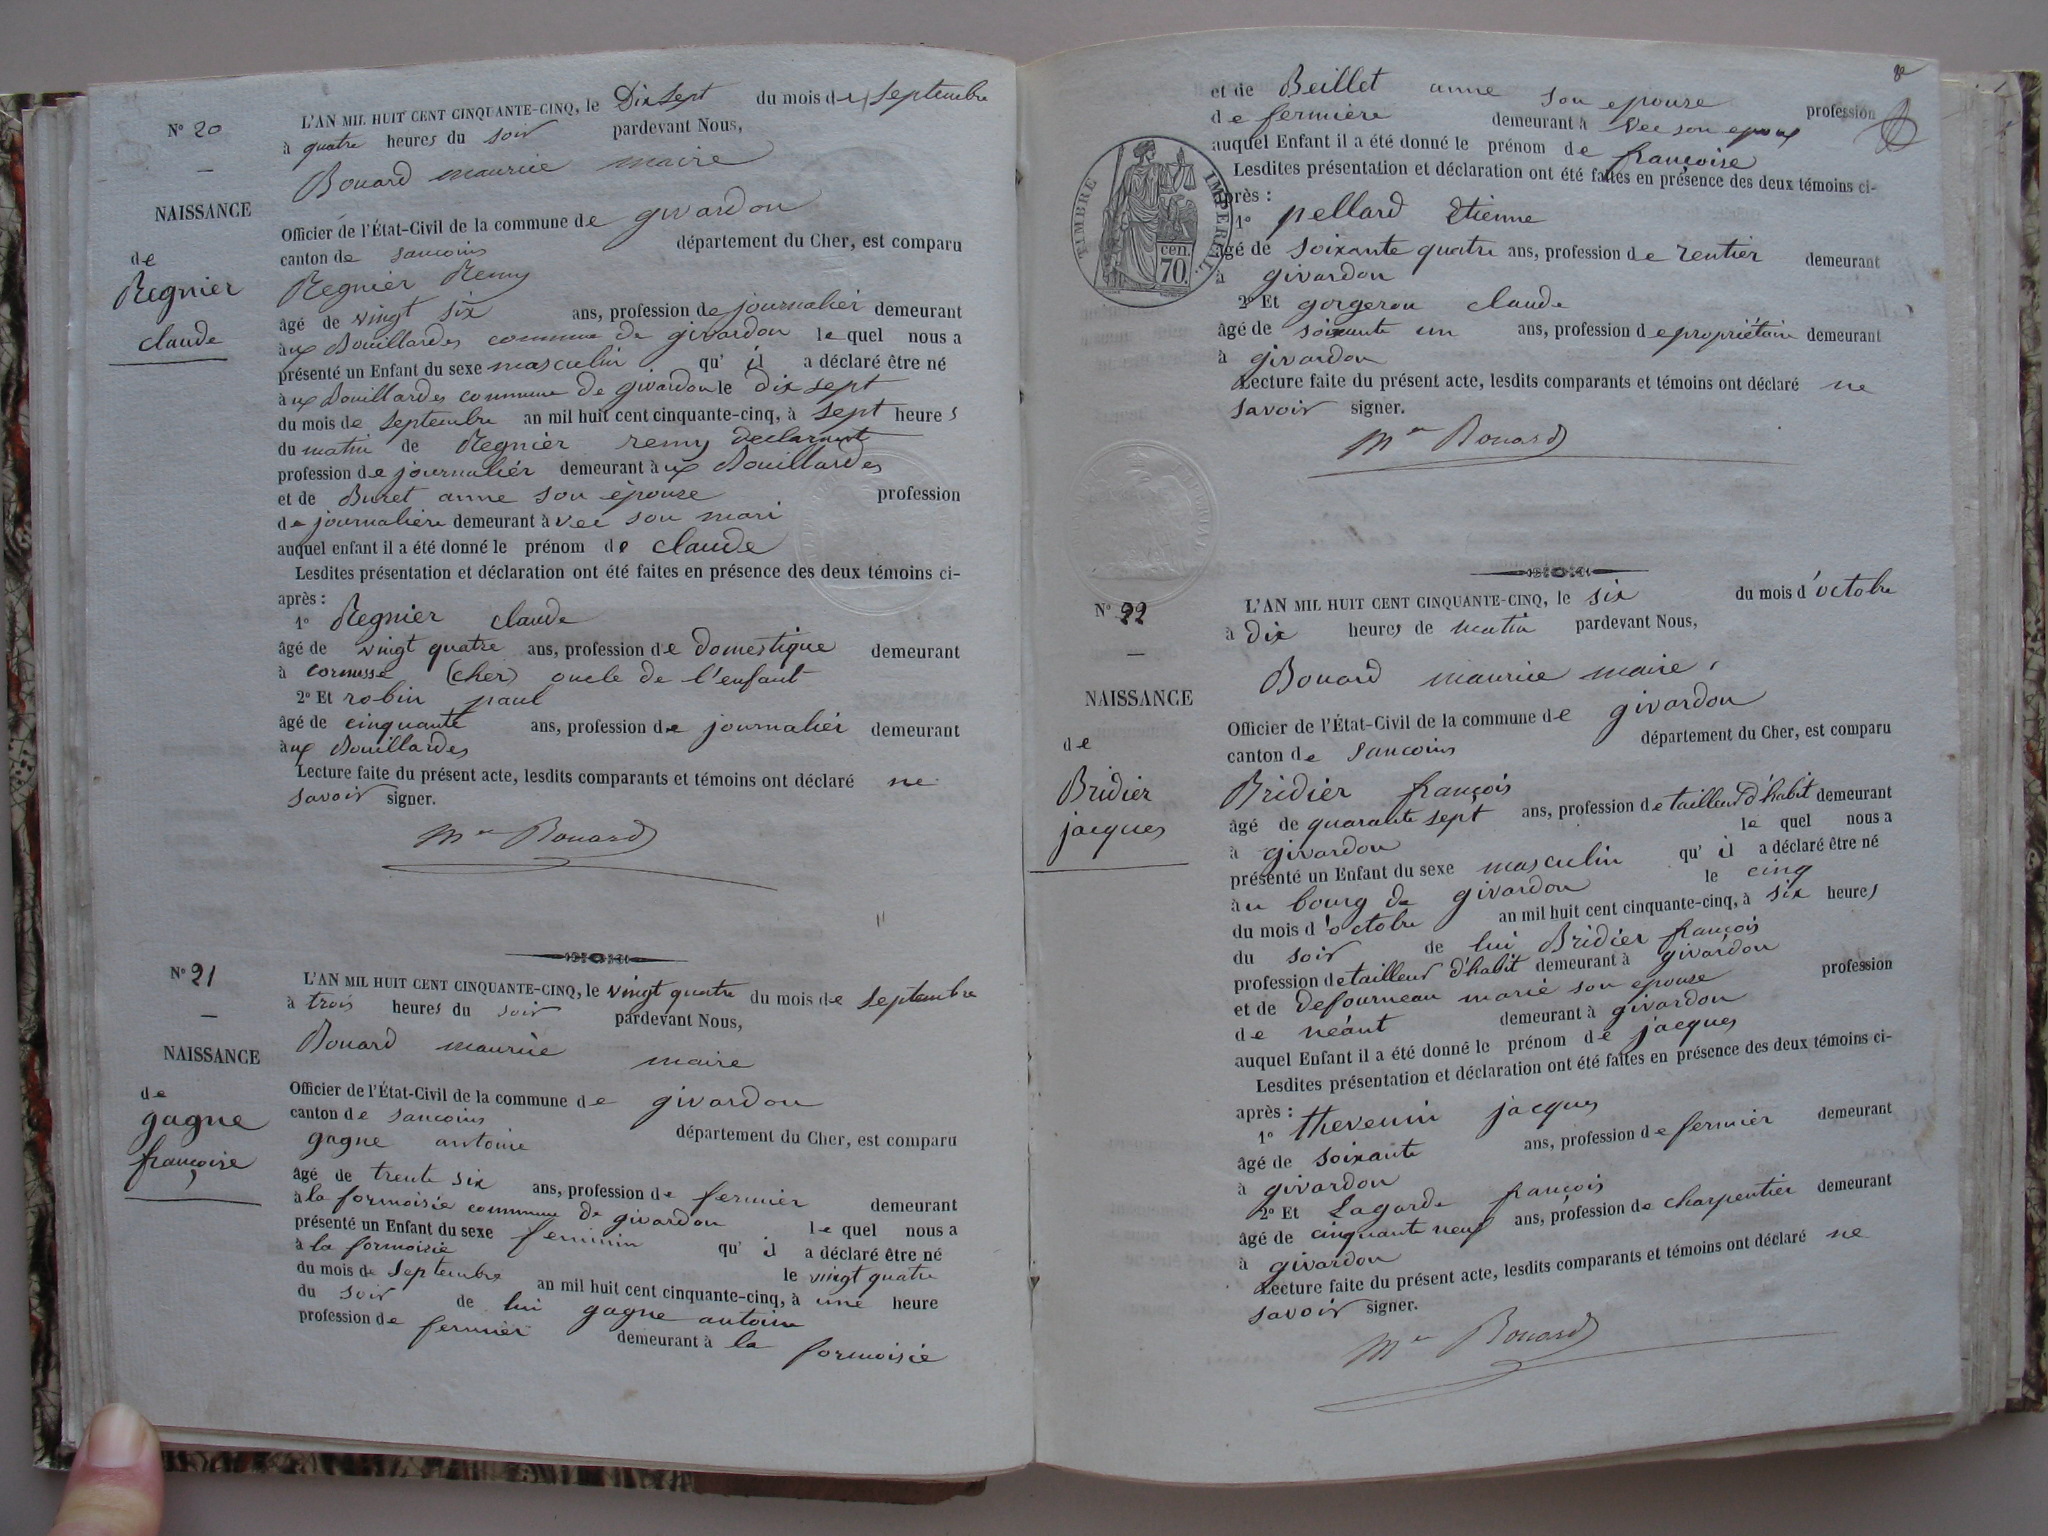 N° 20
NAISSANCE
de
Regnier
claude
L'AN MIL HUIT CENT CINQUANTE-CINQ, le Dix sept du mois de septembre
à quatre heures du soir pardevant Nous,
Bouard maurice maire
Officier de l'État-Civil de la commune de givardon
canton de sancoins département du Cher, est comparu
Regnier Remy
âgé de vingt six ans, profession de journalier demeurant
aux Douillardes commune de givardon lequel nous a
présenté un Enfant du sexe masculin qu'il a déclaré être né
aux Douillardes commune de givardon le dix sept
du mois de septembre an mil huit cent cinquante-cinq, à sept heures
du matin de Regnier remy declarant
profession de journalier demeurant aux Douillardes
et de Buret anne son épouse profession
de journalière demeurant avec son mari
auquel enfant il a été donné le prénom de claude
Lesdites présentation et déclaration ont été faites en présence des deux témoins ci-
après :
1° Regnier claude
âgé de vingt quatre ans, profession de domestique demeurant
à cornusse (cher) oncle de l'enfant
2° Et robin paul
âgé de cinquante ans, profession de journalier demeurant
aux Douillardes
Lecture faite du présent acte, lesdits comparants et témoins ont déclaré ne
savoir signer.
Mce Bouard
N° 21
NAISSANCE
de
gagne
françoise
L'AN MIL HUIT CENT CINQUANTE-CINQ, le vingt quatre du mois de septembre
à trois heures du soir pardevant Nous,
Bouard maurice maire
Officier de l'État-Civil de la commune de givardon
canton de sancoins département du Cher, est comparu
gagne antoine
âgé de trente six ans, profession de fermier demeurant
à la formoisie commune de givardon lequel nous a
présenté un Enfant du sexe feminin qu'il a déclaré être né
à la formoisie le vingt quatre
du mois de septembre an mil huit cent cinquante-cinq, à une heure
du soir de lui gagne antoine
profession de fermier demeurant à la formoisie
et de Beillet anne son epouse profession
de fermière demeurant avec son epoux
auquel Enfant il a été donné le prénom de françoise
Lesdites présentation et déclaration ont été faites en présence des deux témoins ci-
après :
TIMBRE IMPERIAL
70 cen.
1° pellard Etienne
âgé de soixante quatre ans, profession de rentier demeurant
à givardon
2° Et gorgeron claude
âgé de soixante un ans, profession de propriétaire demeurant
à givardon
Lecture faite du présent acte, lesdits comparants et témoins ont déclaré ne
savoir signer.
Mce Bouard
N° 22
NAISSANCE
de
Bridier
jacques
L'AN MIL HUIT CENT CINQUANTE-CINQ, le six du mois d'octobre
à dix heures de matin pardevant Nous,
Bouard maurice maire,
Officier de l'État-Civil de la commune de givardon
canton de sancoins département du Cher, est comparu
Bridier françois
âgé de quarante sept ans, profession de tailleur d'habit demeurant
à givardon lequel nous a
présenté un Enfant du sexe masculin qu'il a déclaré être né
au bourg de givardon le cinq
du mois d'octobre an mil huit cent cinquante-cinq, à six heures
du soir de lui Bridier françois
profession de tailleur d'habit demeurant à givardon
et de Defourneau marie son epouse profession
de neánt demeurant à givardon
auquel Enfant il a été donné le prénom de jacques
Lesdites présentation et déclaration ont été faites en présence des deux témoins ci-
après :
1° thevenin jacques
âgé de soixante ans, profession de fermier demeurant
à givardon
2° Et Lagarde françois
âgé de cinquante neuf ans, profession de charpentier demeurant
à givardon
Lecture faite du présent acte, lesdits comparants et témoins ont déclaré ne
savoir signer.
Mce Bouard